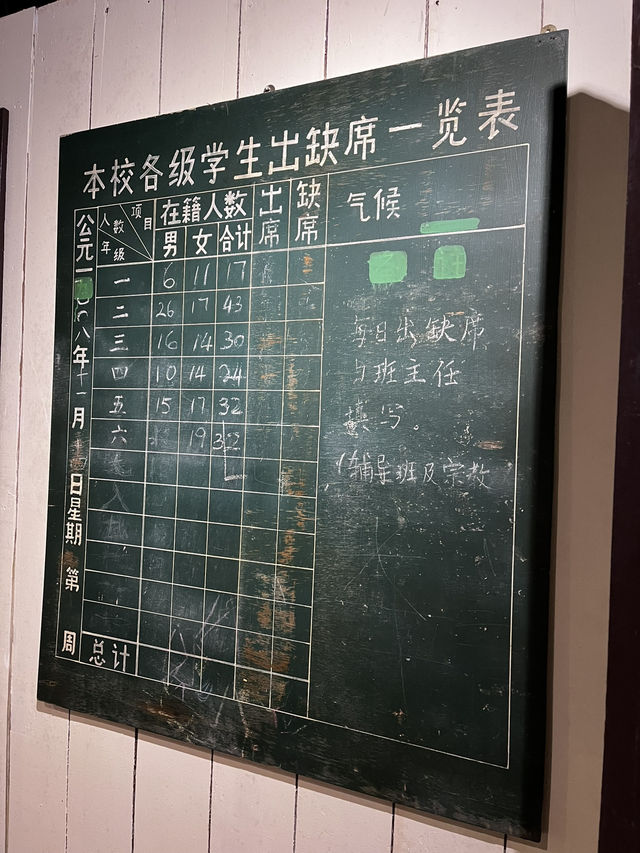 本校各级学生出缺席一览表
公元一 八年十一月 日星期 第 周
项目 人数 年级
在籍人数 出席 缺席 气候
男 女 合计
一 6 11 17
二 26 17 43
三 16 14 30
四 10 14 24
五 15 17 32
六 19 32
总计
每日出缺席
班主任
填写。
(辅导班及宗教